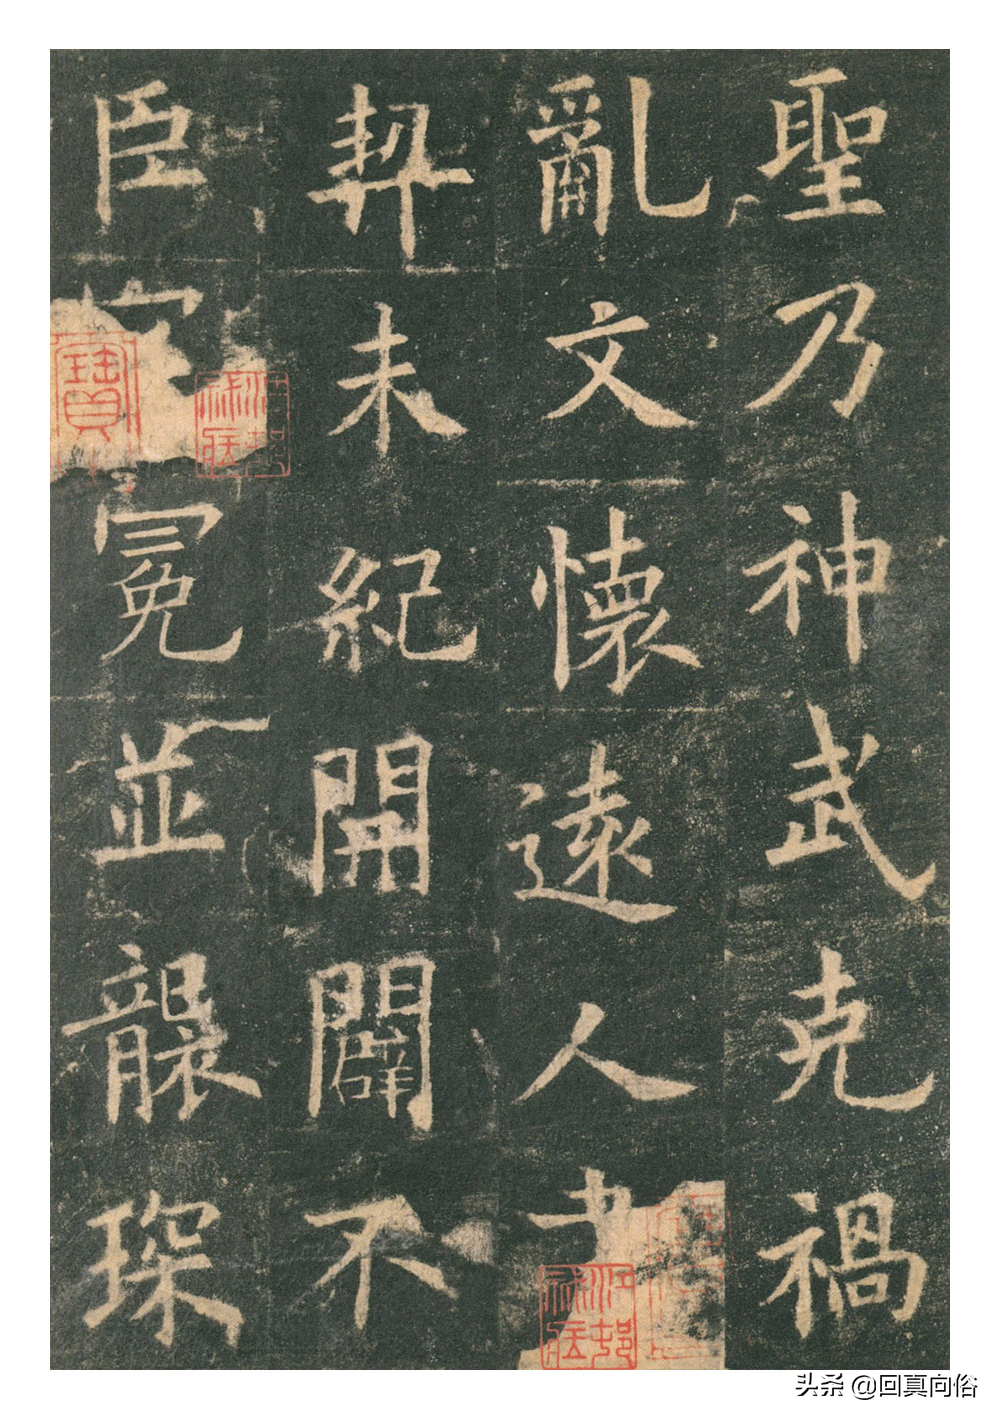 聖乃神武克禍
亂文懷遠人
契未紀開闢不
臣冕並襲琛
寶
头条 @回真向俗